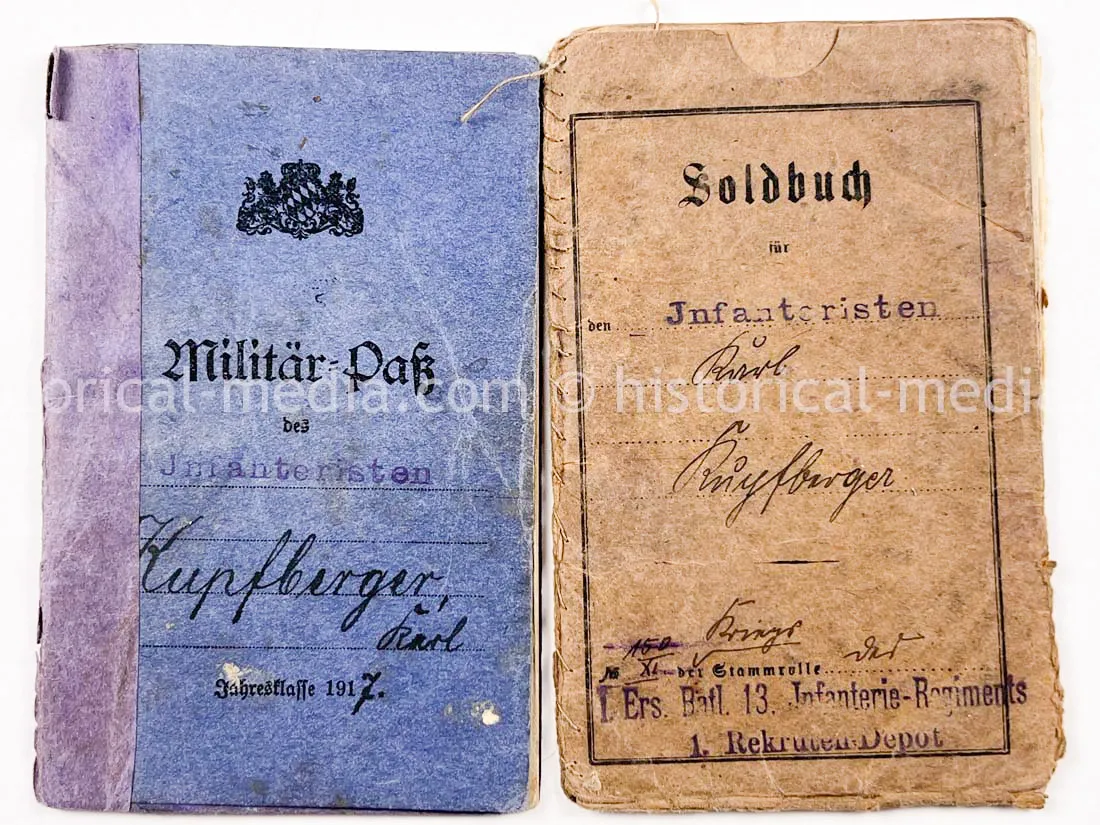 Militär-Paß
des
Jnfanteristen
Kupfberger,
Karl
Jahresklasse 1917.
Soldbuch
für
den Jnfanteristen
Karl
Kupfberger
Kriegs
150
№ XI der Stammrolle der
I. Ers. Batl. 13. Infanterie-Regiments
1. Rekruten-Depot
historical-media.com © historical-media